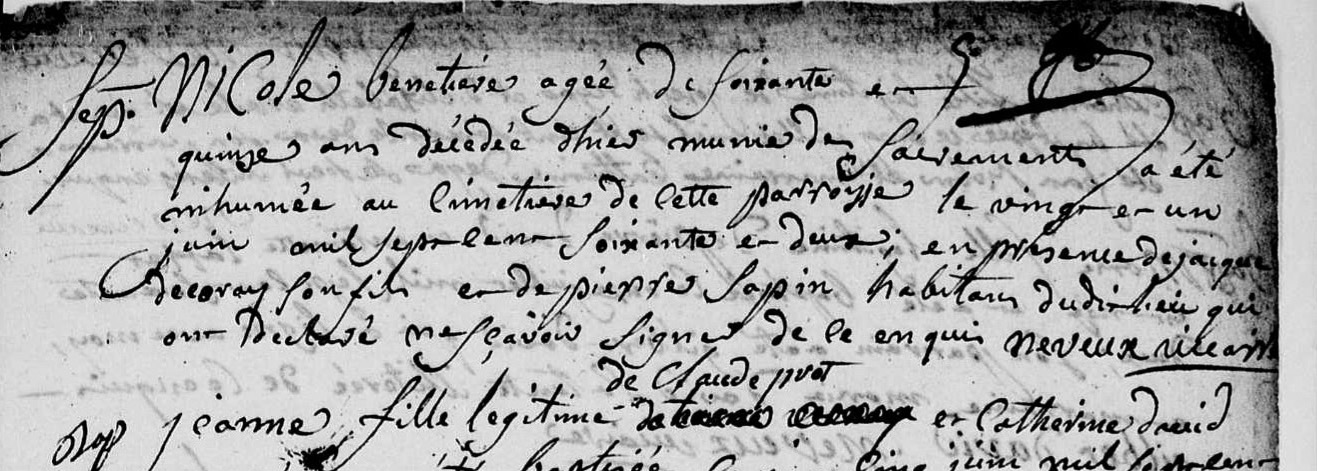 Sep. Nicole benetiere agée de soixante et
quinze ans décédée d'hier munie des sacrements a été
inhumée au cimetiere de cette parroisse le vingt et un
juin mil sept cent soixante et deux; en présence de jacque
decoray son fils et de pierre sapin habitans dudit lieu qui
ont déclaré ne sçavoir signer de ce enquis neveux vicaire
de Claude prot
jeanne fille legitime et Catherine david
baptisée cinq juin mil sept cent